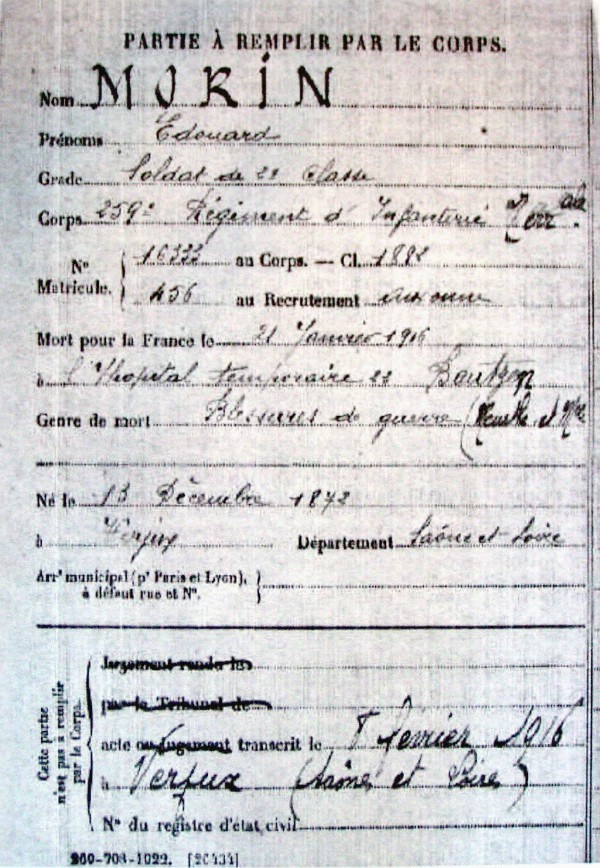 PARTIE À REMPLIR PAR LE CORPS.
Nom MORIN
Prénoms Edouard
Grade Soldat de 2e Classe
Corps 259e Régiment d'Infanterie
No Matricule. 16333 au Corps. — Cl. 1892
456 au Recrutement Auxonne
Mort pour la France le 21 Janvier 1916
à l'Hopital temporaire 22
Genre de mort Blessures de guerre (Meurthe et Mlle
Né le 13 Décembre 1872
à Verjux Département Saône et Loire
Arrt municipal (pr Paris et Lyon), à défaut rue et No.
Cette partie n'est pas à remplir par le Corps.
Jugement rendu le
par le Tribunal de
acte ou jugement transcrit le 8 février 1916
à Verjux (Saône et Loire)
No du registre d'état civil
260-708-1022. [26434]